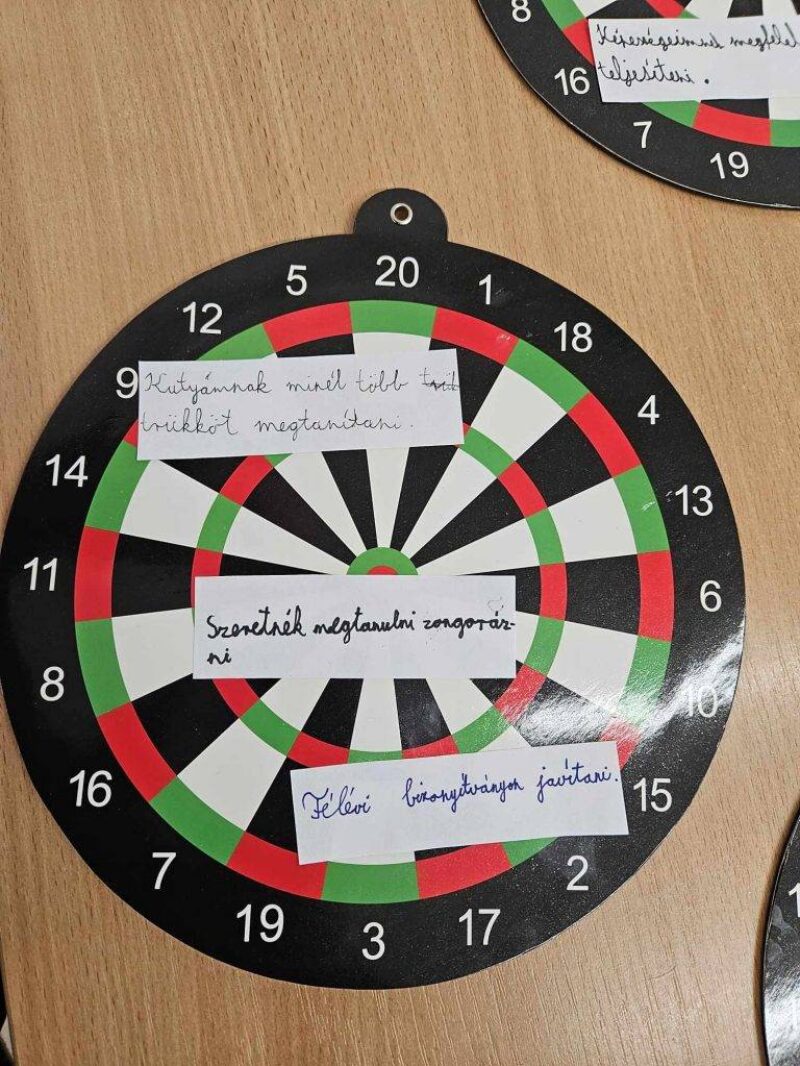 8
Képességeimnek megfelel
teljesíteni.
16
7
19
20
5
1
12
18
9
Kutyámnak minél több trük
trükköt megtanítani.
4
14
13
11
Szeretnék megtanulni zongoráz-
ni
6
8
10
Félévi bizonyítványon javítani.
16
15
7
2
19
3
17